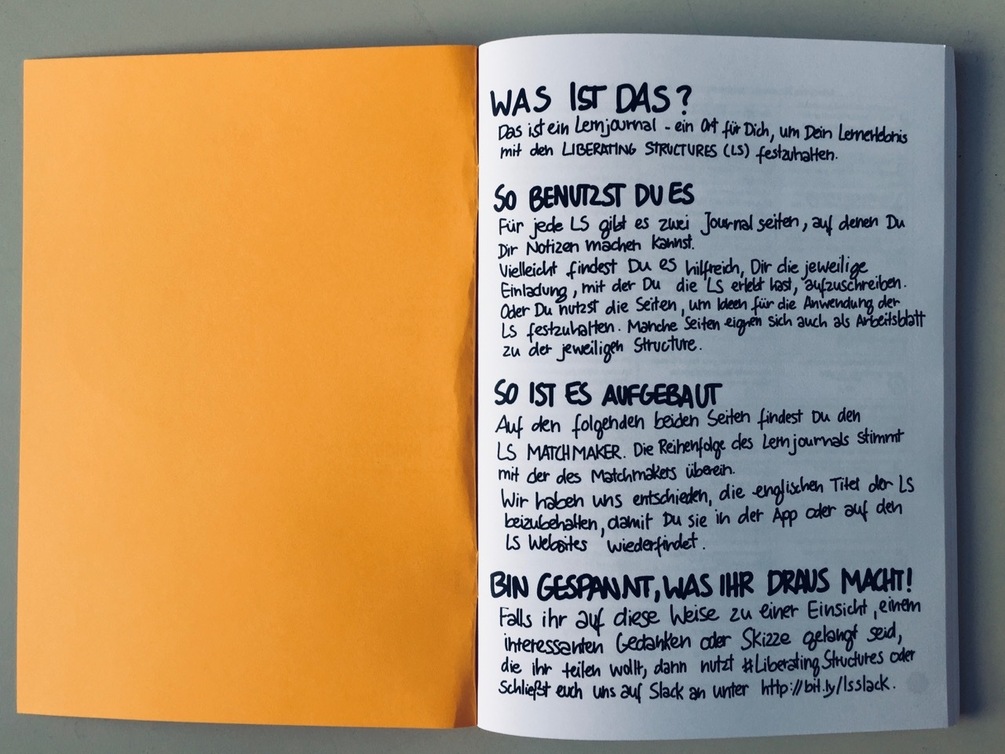 WAS IST DAS?
Das ist ein Lernjournal - ein Ort für Dich, um Dein Lernerlebnis
mit den LIBERATING STRUCTURES (LS) festzuhalten.
SO BENUTZST DU ES
Für jede LS gibt es zwei Journalseiten, auf denen Du
Dir Notizen machen kannst.
Vielleicht findest Du es hilfreich, Dir die jeweilige
Einladung, mit der Du die LS erlebt hast, aufzuschreiben.
Oder Du nutzst die Seiten, um Ideen für die Anwendung der
LS festzuhalten. Manche Seiten eignen sich auch als Arbeitsblatt
zu der jeweiligen Structure.
SO IST ES AUFGEBAUT
Auf den folgenden beiden Seiten findest Du den
LS MATCHMAKER. Die Reihenfolge des Lernjournals stimmt
mit der des Matchmakers überein.
Wir haben uns entschieden, die englischen Titel der LS
beizubehalten, damit Du sie in der App oder auf den
LS Websites wiederfindet.
BIN GESPANNT, WAS IHR DRAUS MACHT!
Falls ihr auf diese Weise zu einer Einsicht, einem
interessanten Gedanken oder Skizze gelangt seid,
die ihr teilen wollt, dann nutzt #LiberatingStructures oder
Schließt euch uns auf Slack an unter http://bit.ly/lsslack.